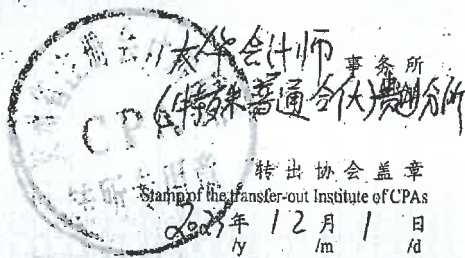 大华会计师 事务所
(特殊普通合伙) 分所
CPA
转出协会盖章
Stamp of the transfer-out Institute of CPAs
2023年 12月 1日
/y /m /d